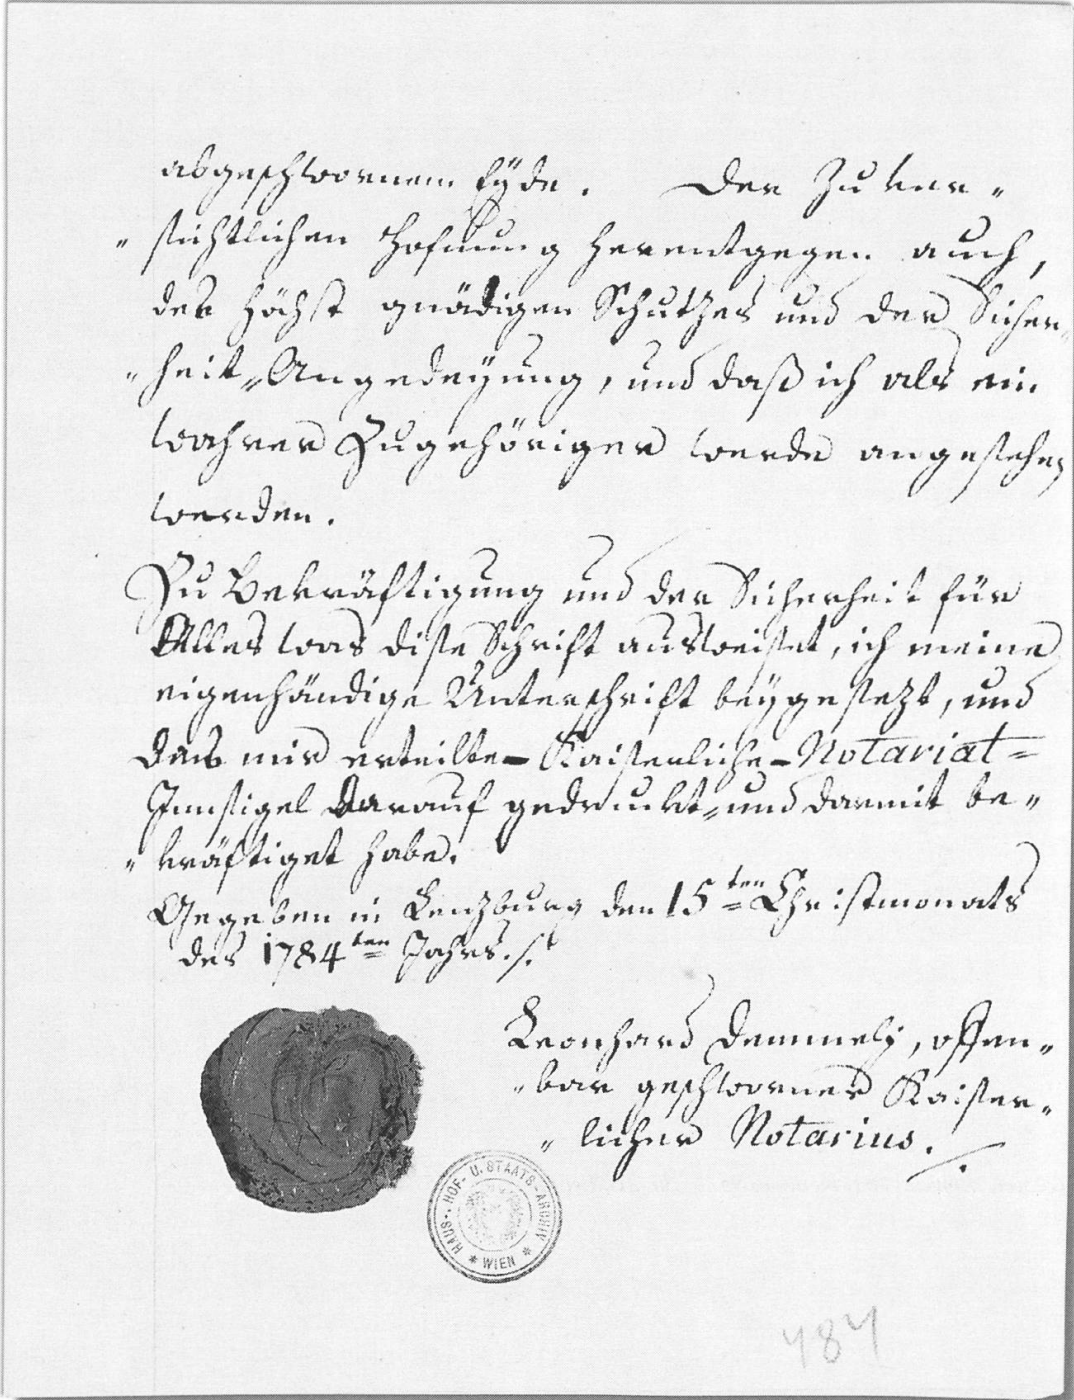 abgeschwornem Eÿde. Der Zuver„
„sichtlichen Hofnung herentgegen auch,
des höchst gnädigen Schutzes und der Sicher„
„heit„Angedeÿung, und daß ich als ein
wahrer Zugehöriger werde angesehen
werden.
Zu Bekräftigung und der Sicherheit für
Alles was dise Schrift ausweiset, ich meine
eigenhändige Unterschrift beÿgesezt, und
das mir erteilte-Kaiserliche-Notariat=
Innsigel darauf gedruckt„und darmit be„
„kräftiget habe.
Gegeben in Lenzburg den 15ten Christmonats
des 1784ten Jahrs./.
Leonhard Demmelj, offen„
„bar geschworner Kaiser„
„licher Notarius.
HAUS-, HOF- U. STAATS-ARCHIV
* WIEN *
484